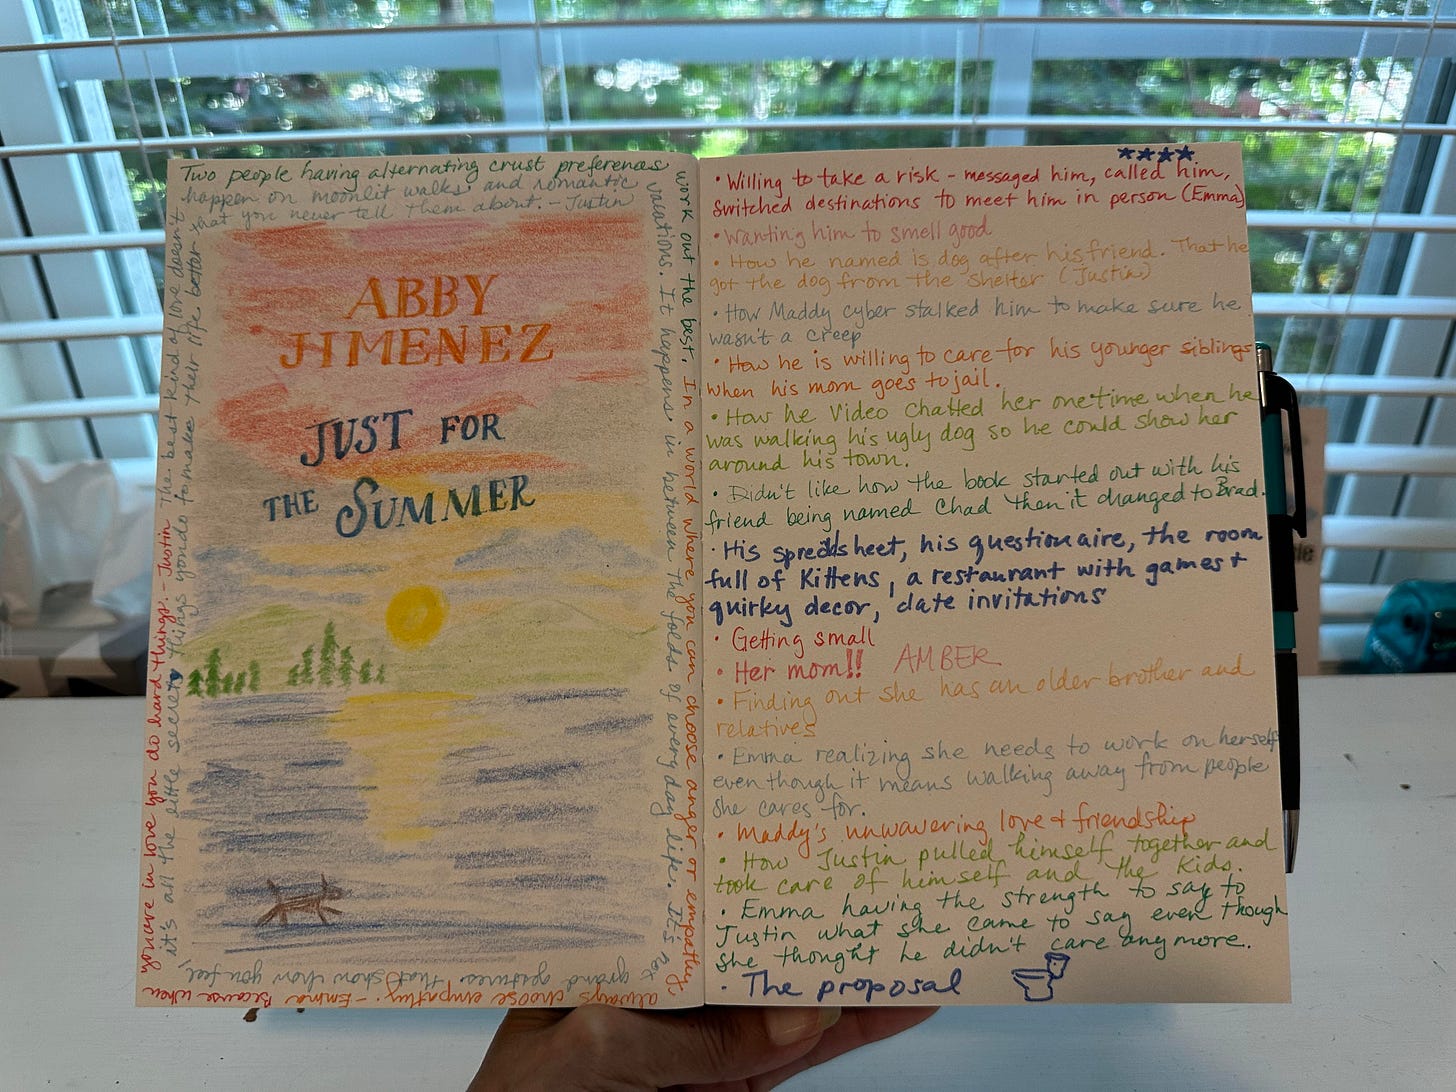 Two people having alternating crust preferences
work out the best. In a world where you can choose anger or empathy
always choose empathy. - Emma Because when
you're in love you do hard things. - Justin The best kind of love doesn't
happen on moonlit walks and romantic
vacations. It happens in between the folds of every day life. It's not
grand gestures that show how you feel,
it's all the little secret things you do to make their life better
that you never tell them about. - Justin
ABBY
JIMENEZ
JUST FOR
THE SUMMER
• Willing to take a risk - messaged him, called him,
switched destinations to meet him in person (Emma)
• Wanting him to smell good
• How he named is dog after his friend. That he
got the dog from the shelter (Justin)
• How Maddy cyber stalked him to make sure he
wasn't a creep
• How he is willing to care for his younger siblings
when his mom goes to jail.
• How he video chatted her one time when he
was walking his ugly dog so he could show her
around his town.
• Didn't like how the book started out with his
friend being named Chad then it changed to Brad.
• His spreadsheet, his questionaire, the room
full of Kittens, a restaurant with games +
quirky decor, date invitations
• Getting small
• Her mom!! AMBER
• Finding out she has an older brother and
relatives
• Emma realizing she needs to work on herself
even though it means walking away from people
she cares for.
• Maddy's unwavering love + friendship
• How Justin pulled himself together and
took care of himself and the kids.
• Emma having the strength to say to
Justin what she came to say even though
she thought he didn't care anymore.
• The proposal